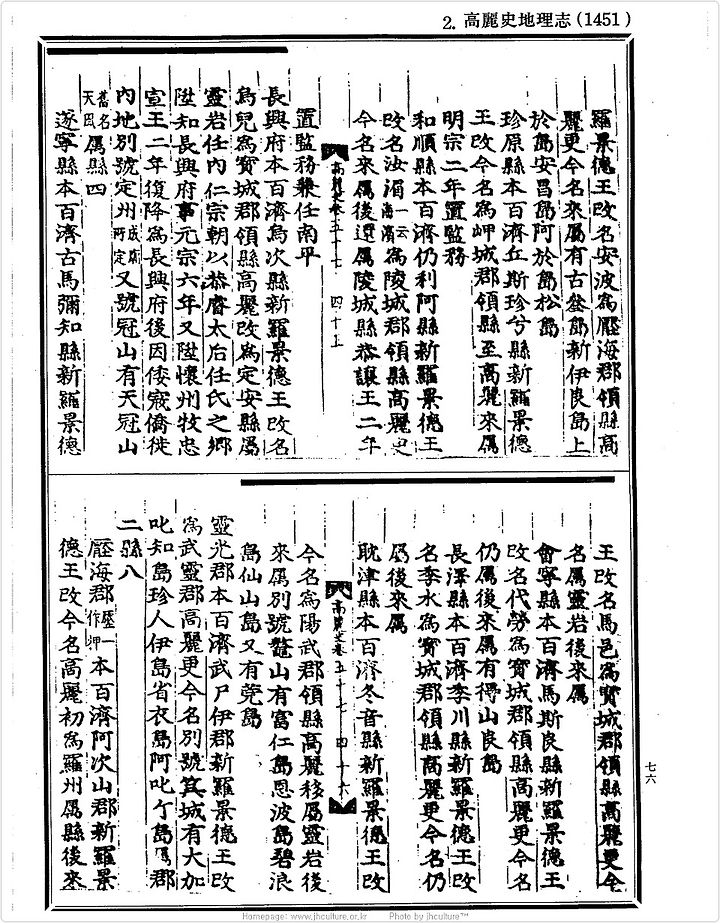 2. 高麗史地理志(1451)
羅景德王改名安波爲壓海郡領縣高
麗更今名來屬有古參島新伊良島上
於島安昌島阿於島松島
珍原縣本百濟丘斯珍兮縣新羅景德
王改今名爲岬城郡領縣至高麗來屬
明宗二年置監務
和順縣本百濟仍利阿縣新羅景德王
改名汝湄一云海濱爲陵城郡領縣高麗更
今名來屬後還屬陵城縣恭讓王二年
高麗史卷五十七 四十上
置監務兼任南平
長興府本百濟烏次縣新羅景德王改名
烏兒爲寶城郡領縣高麗改爲定安縣屬
靈岩任內仁宗朝以恭睿太后任氏之鄕
陞知長興府事元宗六年又陞懷州牧忠
宣王二年復降爲長興府後因倭寇僑徙
內地別號定州成廟所定又號冠山有天冠山
舊名天風屬縣四
遂寧縣本百濟古馬彌知縣新羅景德
王改名馬邑爲寶城郡領縣高麗更今
名屬靈岩後來屬
會寧縣本百濟馬斯良縣新羅景德王
改名代勞爲寶城郡領縣高麗更今名
仍屬後來屬有得山良島
長澤縣本百濟季川縣新羅景德王改
名季水爲寶城郡領縣高麗更今名仍
屬後來屬
耽津縣本百濟冬音縣新羅景德王改
高麗史卷五十七 四十六
今名爲陽武郡領縣高麗移屬靈岩後
來屬別號鼇山有富仁島恩波島碧浪
島仙山島又有莞島
靈光郡本百濟武尸伊郡新羅景德王改
爲武靈郡高麗更今名別號箕城有大加
叱知島珍人伊島省衣島阿叱亇島屬郡
二縣八
壓海郡壓一作押本百濟阿次山郡新羅景
德王改今名高麗初爲羅州屬縣後來
七六
Homepage: www.jhculture.or.kr Photo by jhculture™